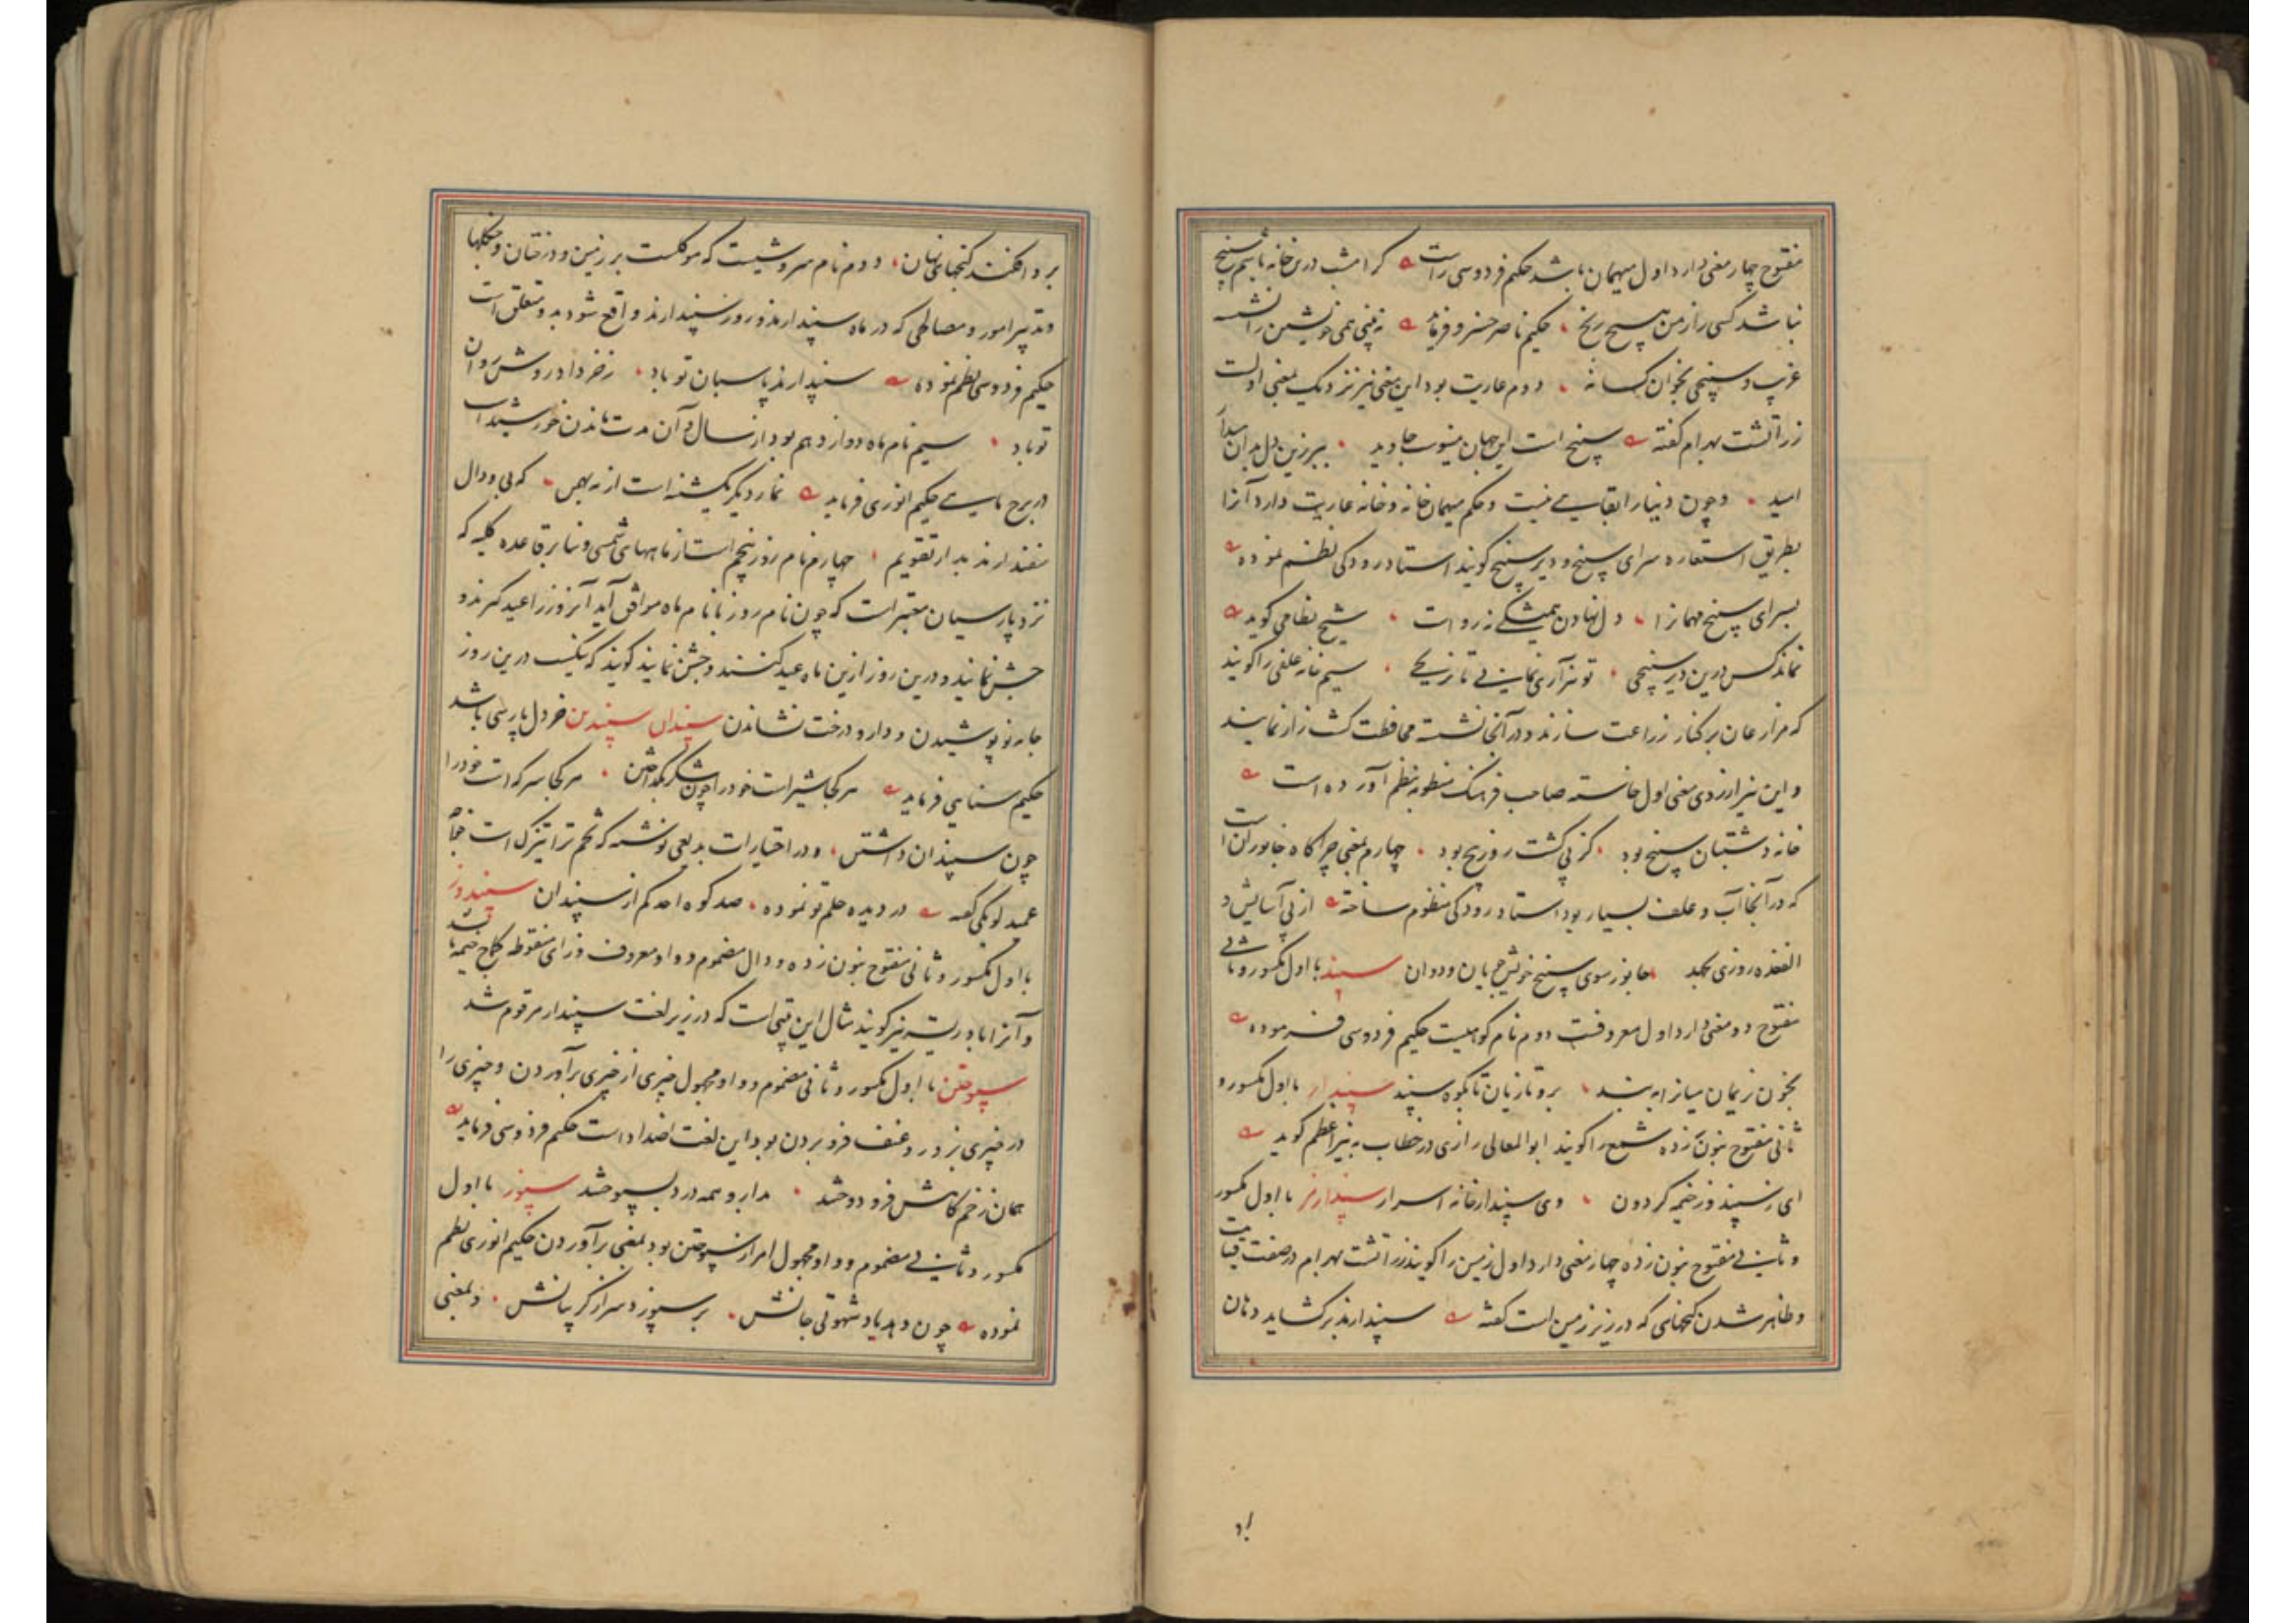 مفتوح چهار معنی دارد اول میهمان باشد حکیم فردوسی راست گر امشب درین خانه باشم سپنج
نباشد کسی را ز من هیچ رنج حکیم ناصر خسرو فرماید نه بینی همی خویشتن را نشسته
غریب و سپنجی بخوان کسانه دوم عاریت بود این معنی نیز نزدیک بمعنی اولست
زراتشت بهرام گفته سپنج است این جهان جاوید درین دل
امید و چون دنیا را بقایی نیست و حکم میهمان خانه و خانه عاریت دارد آنرا
بطریق استعاره سرای سپنج و دیر سپنج گویند استاد رودکی نظم نموده
بسرای سپنج مهمانرا دل نهادن همیشگی نه رواست شیخ نظامی گوید
نماند کس درین دیر سپنجی تو نیز آری نمانی تا نرنجی سیم خانه علفی را گویند
که مزارعان بر کنار زراعت سازند و در آنجا نشسته محافظت کشت زار نمایند
و این نیز از روی معنی اول خاسته صاحب فرهنگ منظومه بنظم آورده است
خانه دشتبان سپنج بود کز پی کشت روز رنج بود چهارم بمعنی چراگاه جانوران است
که در آنجا آب و علف بسیار بود استاد رودکی منظوم ساخته از پی آسایش و
الفغده روزی بجهد جانور سوی سپنج خویش جویان و دوان سپند با اول مکسور و ثانی
مفتوح دو معنی دارد اول معروفست دوم نام کوهیست حکیم فردوسی فرموده
بخون نریمان میان را به بند برو تازیان تا بکوه سپند سپندار با اول مکسور و
ثانی مفتوح بنون زده شمع را گویند ابوالمعالی رازی در خطاب به نیر اعظم گوید
ای سپند وز خیمه گردون وی سپندار خانه اسرار سپندارمز با اول مکسور
و ثانی مفتوح بنون زده چهار معنی دارد اول زمین را گویند زراتشت بهرام در صفت قیامت
و ظاهر شدن گنجهای که در زیر زمین است گفته سپندارمذ برگشاید دهان
بر وافکند گنجهای نهان دوم نام سروشیست که موکلست بر زمین و درختان و جنگلها
و تدبیر امور و مصالحی که در ماه سپندارمذ و روز سپندارمذ واقع شود بدو متعلق است
حکیم فردوسی نظم نموده سپندارمذ پاسبان تو باد ز خرداد روشن روان
تو باد سیم نام ماه دوازدهم بود از سال و آن مدت ماندن خورشید است
در برج ماهی حکیم انوری فرماید نماز دیگر یکشنبه است از بهمن که بی و دال
سفندارمذ بد از تقویم چهارم نام روز پنجم است از ماههای شمسی و بنا بر قاعده کلیه که
نزد پارسیان معتبر است که چون نام روز با نام ماه موافق آید آنروز را عید گیرند و
جشن نمایند و درین روز ازین ماه عید کنند و جشن نمایند گویند که نیکست درین روز
جامه نو پوشیدن و دار و درخت نشاندن سپندان سپندین خردل پارسی باشد
حکیم سنایی فرماید هر کجا شیر است خود را چون شکر بگداختن هر کجا سرکه است خود را
چون سپندان داشتن و در اختیارات بدیعی نوشته که تخم ترا تیزک است
عمید لویکی گفته در دیده حلم تو نموده صد کوه احد کم از سپندان سپندوز
با اول مکسور و ثانی مفتوح بنون زده و دال مضموم و واو معروف و زای منقوطه خیمه باشد
و آنرا بادریسه نیز گویند مثال این بیتی است که در زیر لغت سپندار مرقوم شد
سپوختن با اول مکسور و ثانی مضموم و واو مجهول چیزی از چیزی برآوردن و چیزی را
در چیزی بزور و عنف فرو بردن بود و این لغت اضداد است حکیم فردوسی فرماید
همان زخم گاهش فرو دوختند بدارو همه درد بسپوختند سپوز با اول
مکسور و ثانی مضموم و واو مجهول امر از سپوختن بود بمعنی برآوردن حکیم انوری نظم
نموده چون دهد یاد شهوتی جانش بر سپوزد سر از گریبانش و بمعنی